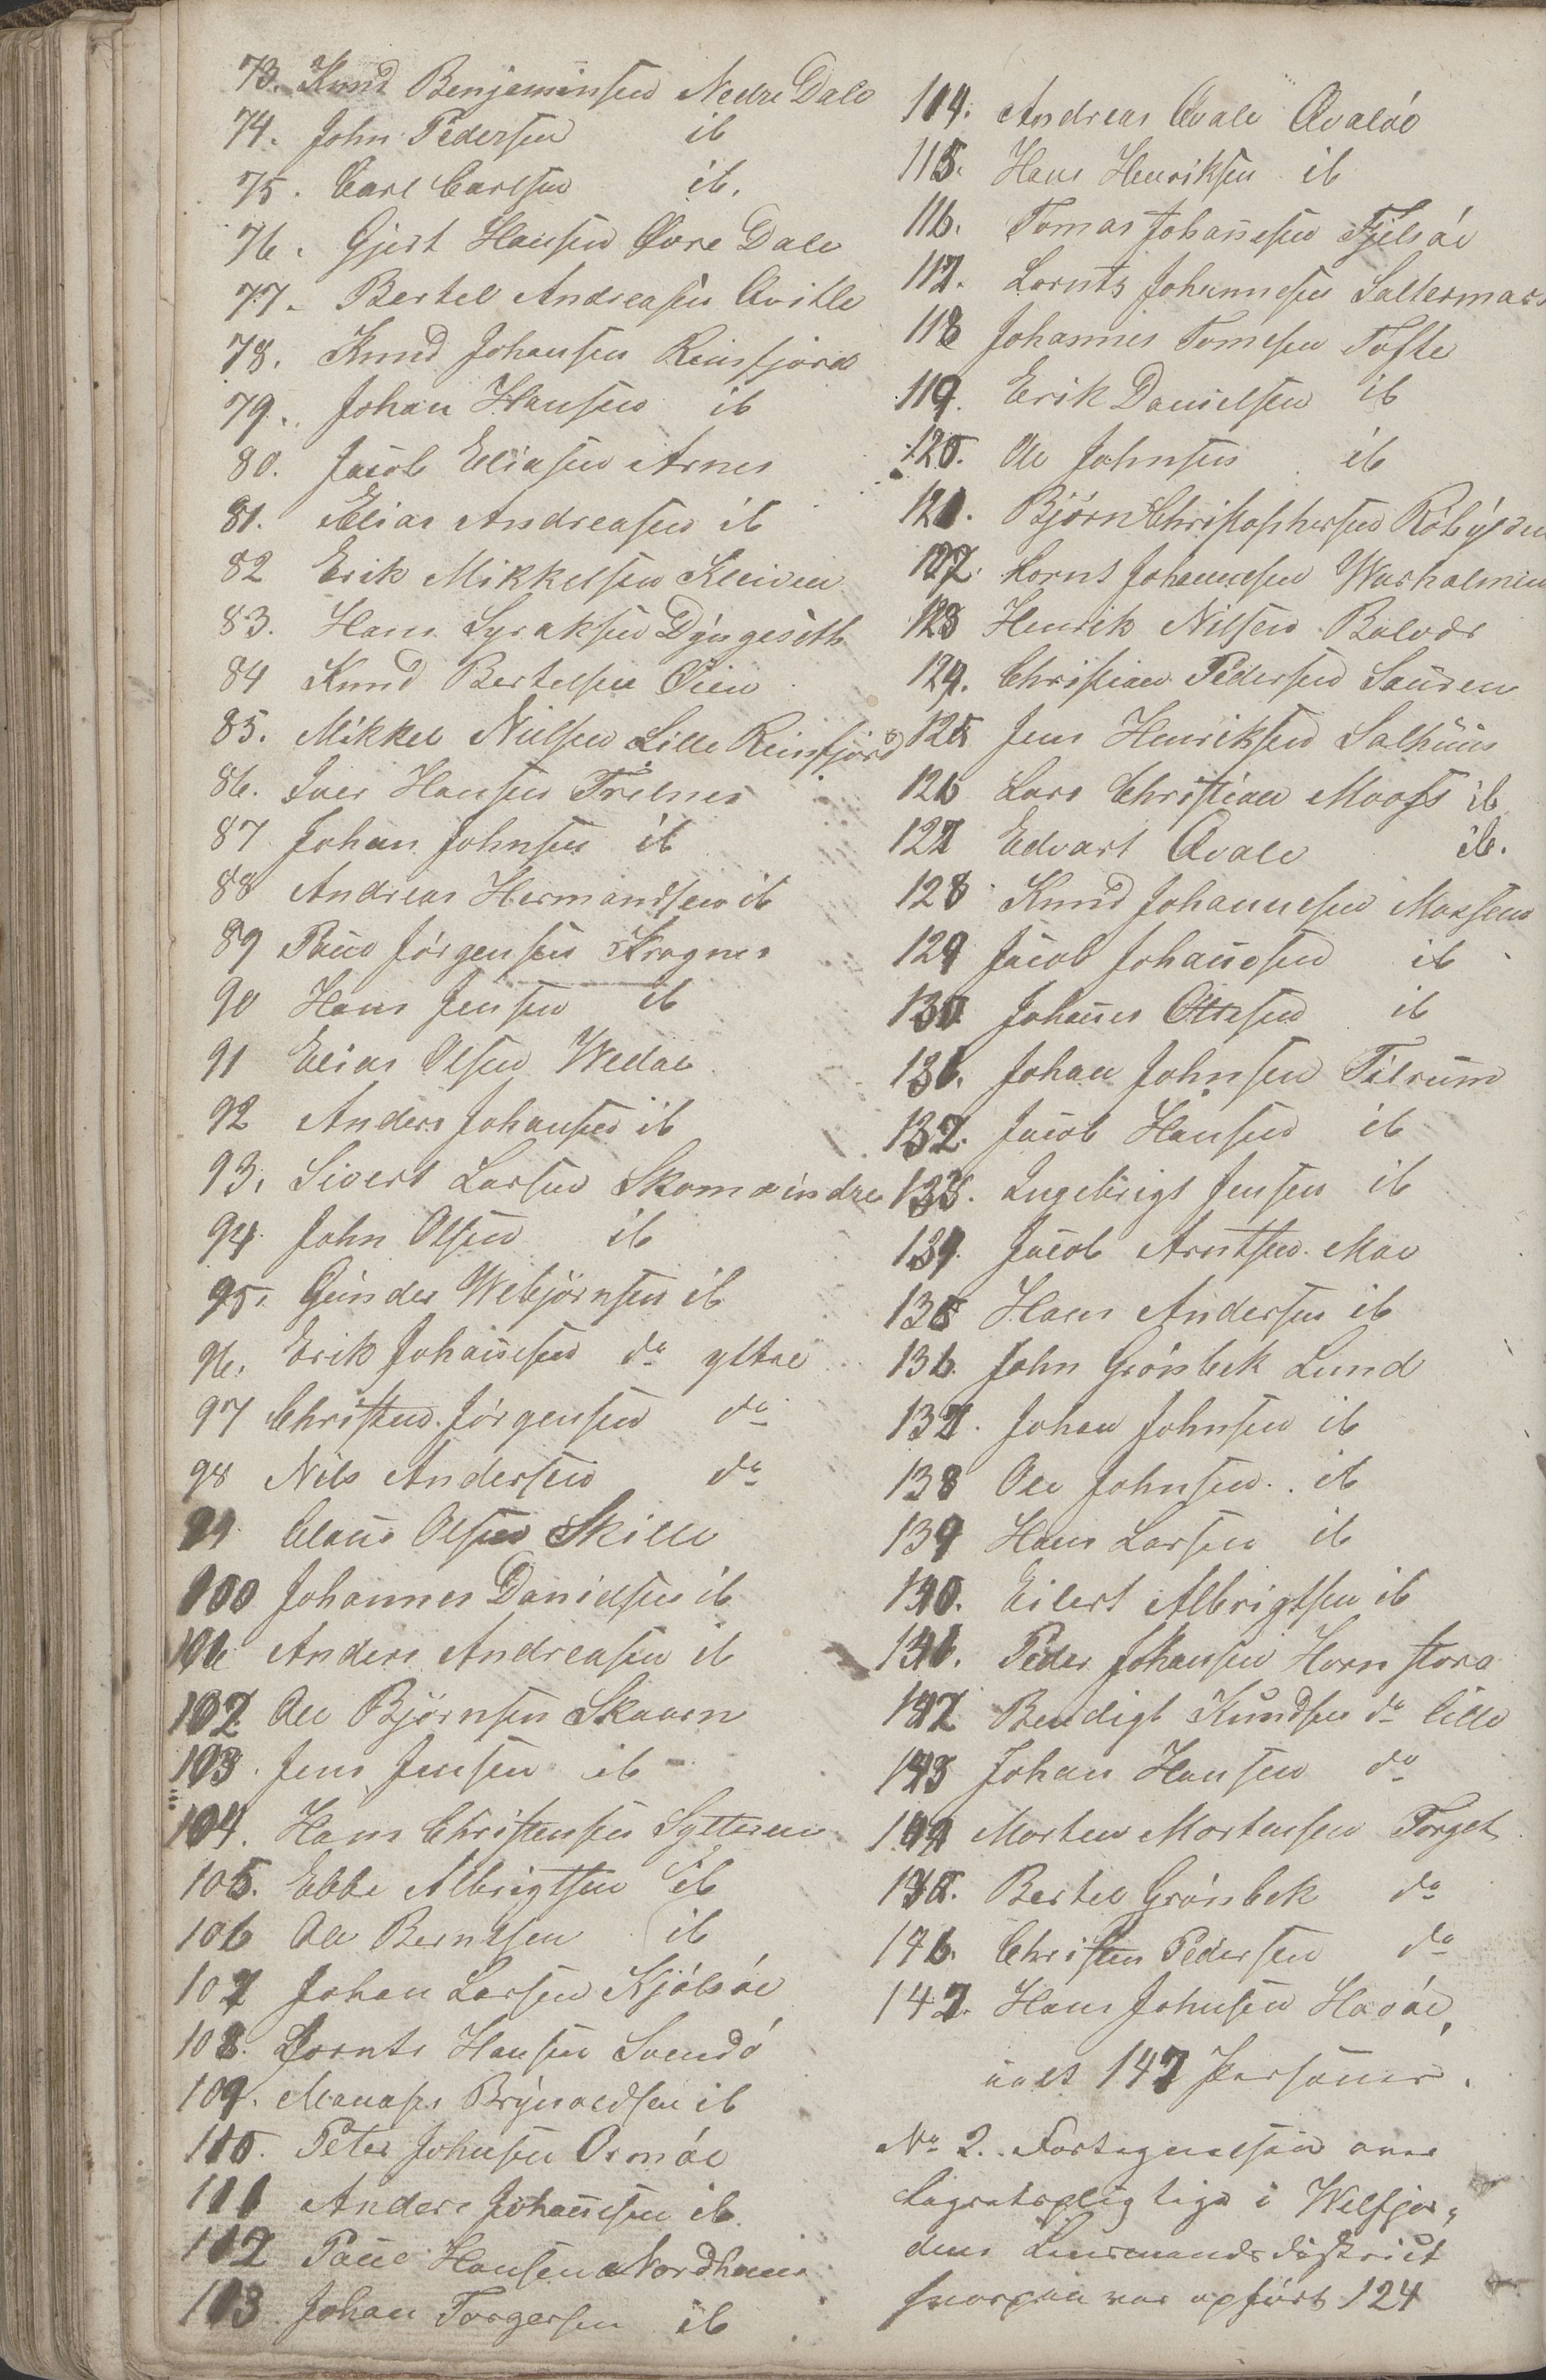 73. Knud Benjaminsen Nedre Dale
74. John Pedersen ib
75. Carl Carlsen ib.
76. Gjert Hansen Øvre Dale
77. Bertel Andreasen Qvitle
78. Knud Johansen Reinsfjord
79. Johan Hansen ib
80. Jacob Eliasen Arnes
81. Elias Andreasen ib
82 Erik Mikkelsen Kleiven
83. Hans Syraksen Dyngeseth
84 Knud Bertelsen Øien
85. Mikkel Nielsen Lille Reinsfjord
86. Iver Hansen Trælnes
87 Johan Johnsen ib
88 Andreas Hermandsen ib
89 Paul Jörgensen Krognes
90 Hans Jensen ib
91 Elias Olsen Wedal
92 Anders Johansen ib
93. Sivert Larsen Skomo indre
94. John Olsen ib
95. Gunder Webjörnsen ib
96. Erik Johañesen do ytre
97 Christen Jörgensen do
98 Nils Andersen do
99 Claus Olsen Skille
100 Johannes Danielsen ib
101 Anders Andreasen ib
102. Ole Björnsen Skaarn
103. Jens Jensen ib
104. Hans Christensen Sylteren
105. Ebbe Albrigtsen ib
106 Ole Berntsen ib
107 Johan Larsen Kjölsöe
108. Lornts Hansen Svendö
109. Manases Brynoldsen ib
110. Peter Johnsen Ormöe
111 Anders Johañesen ib
112 Paul Hansen Nordhuus
113 Johan Torgersen ib
114. Andreas Qvale Qvalöe
115. Hans Henriksen ib
116. Tomas Johañesen Fjelsöe
117. Lornts Johannesen Saltermark
118 Johannes Tomesen Tofte
119. Erik Danielsen ib
120. Ole Johnsen ib
121. Björn Christophersen Röbyfden
122. Lornt Johannesen Warholmen
123 Henrik Nilsen Bolvær
124. Christian Pedersen Sauren
125 Jens Henriksen Salhuus
126 Lars Christian Moofs ib
127 Edvart Qvale ib.
128 Knud Johannesen Moesen
129 Jacob Johañesen ib
130 Johañes Ottesen ib
131. Johan Johnsen Tilrum
132. Jacob Hansen ib
133. Ingebrigt Jensen ib
134. Jacob Arntsen Moe
135 Hans Andersen ib
136. John Grönbek Lund
137. Johan Johnsen ib
138 Ole Johnsen ib
139 Hans Larsen ib
140. Eilert Albrigtsen ib
141. Peder Johansen Horn stora
142 Bendigt Knudsen do lille
143 Johan Hansen do
144 Morten Mortensen Torget
145. Bertel Grönbek do
146. Christen Pedersen do
147. Hans Johnsen Havöe,
ialt 147 Personer.
No 2. Fortegnelsen over
Lagretspligtige i Welfjor„
dens Lensmandsdistrict
hvorpaa var opfört 124